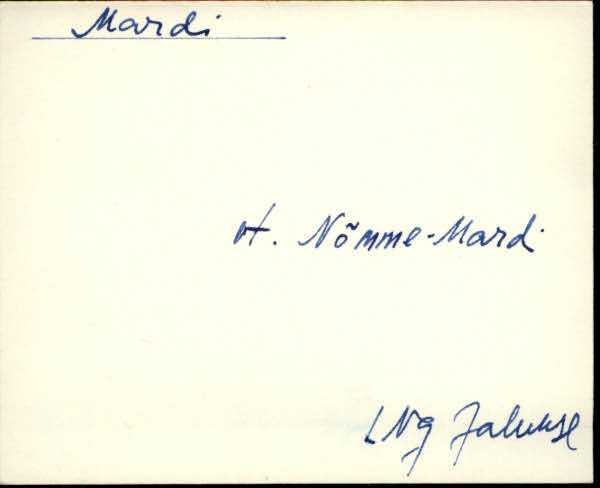 Mardi
vt. Nõmme-Mardi
LNg Jalukse